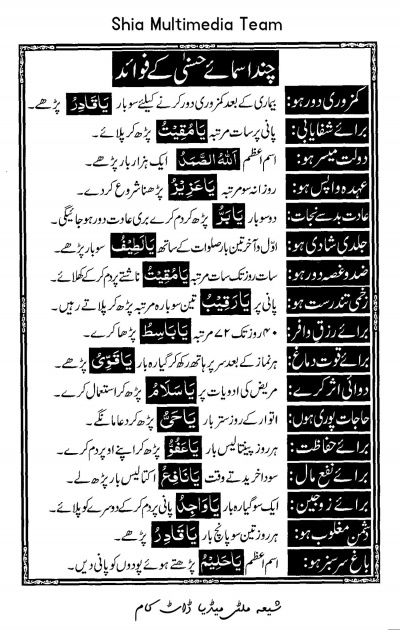 Shia Multimedia Team
چند اسمائے حسنیٰ کے فوائد
کمزوری دور ہو: بیماری کے بعد کمزوری دور کرنے کیلئے سو بار يَا قَادِرُ پڑھے۔
برائے شفایابی: پانی پر سات مرتبہ يَا مُقِيْتُ پڑھ کر پلائے۔
دولت میسر ہو: اسم اعظم اَللهُ الصَّمَدُ ایک ہزار بار پڑھے۔
عہدہ واپس ہو: روزانہ سو مرتبہ يَا عَزِيْزُ پڑھنا شروع کر دے۔
عادت بد سے نجات: دو سو بار يَا بَرُّ پڑھ کر دم کرے بری عادت دور ہو جائیگی۔
جلدی شادی ہو: اوّل و آخر تین بار صلوات کے ساتھ يَا لَطِيْفُ سو بار پڑھے۔
ضد و غصہ دور ہو: سات روز تک سات مرتبہ يَا مُقِيْتُ ناشتے پر دم کر کے کھلائے۔
زخمی تندرست ہو: پانی پر يَا رَقِيْبُ تین سو بارہ مرتبہ پڑھ کر پلاتے رہیں۔
برائے رزق وافر: ۴۰ روز تک ۷۲ مرتبہ يَا بَاسِطُ پڑھا کرے۔
برائے قوت دماغ: ہر نماز کے بعد سر پر ہاتھ رکھ کر گیارہ بار يَا قَوِىُّ پڑھے۔
دوائی اثر کرے: مریض کی ادویات پر يَا سَلَامُ پڑھ کر استعمال کرے۔
حاجات پوری ہوں: اتوار کے روز ستر بار يَا حَىُّ پڑھ کر دعا مانگے۔
برائے حفاظت: ہر روز پینتالیس بار يَا عَفُوُّ پڑھ کر اپنے اوپر دم کرے۔
برائے نفع مال: سودا خریدتے وقت يَا نَافِعُ اکتالیس بار پڑھ لے۔
برائے زوجین: ایک سو گیارہ بار يَا وَاجِدُ پانی پر دم کر کے دوسرے کو پلائے۔
دشمن مغلوب ہو: ہر روز تین سو پانچ بار يَا قَادِرُ پڑھے۔
باغ سرسبز ہو: اسم اعظم يَا حَلِيْمُ پڑھتے ہوئے پودوں کو پانی دیں۔
شیعہ ملٹی میڈیا ڈاٹ کام